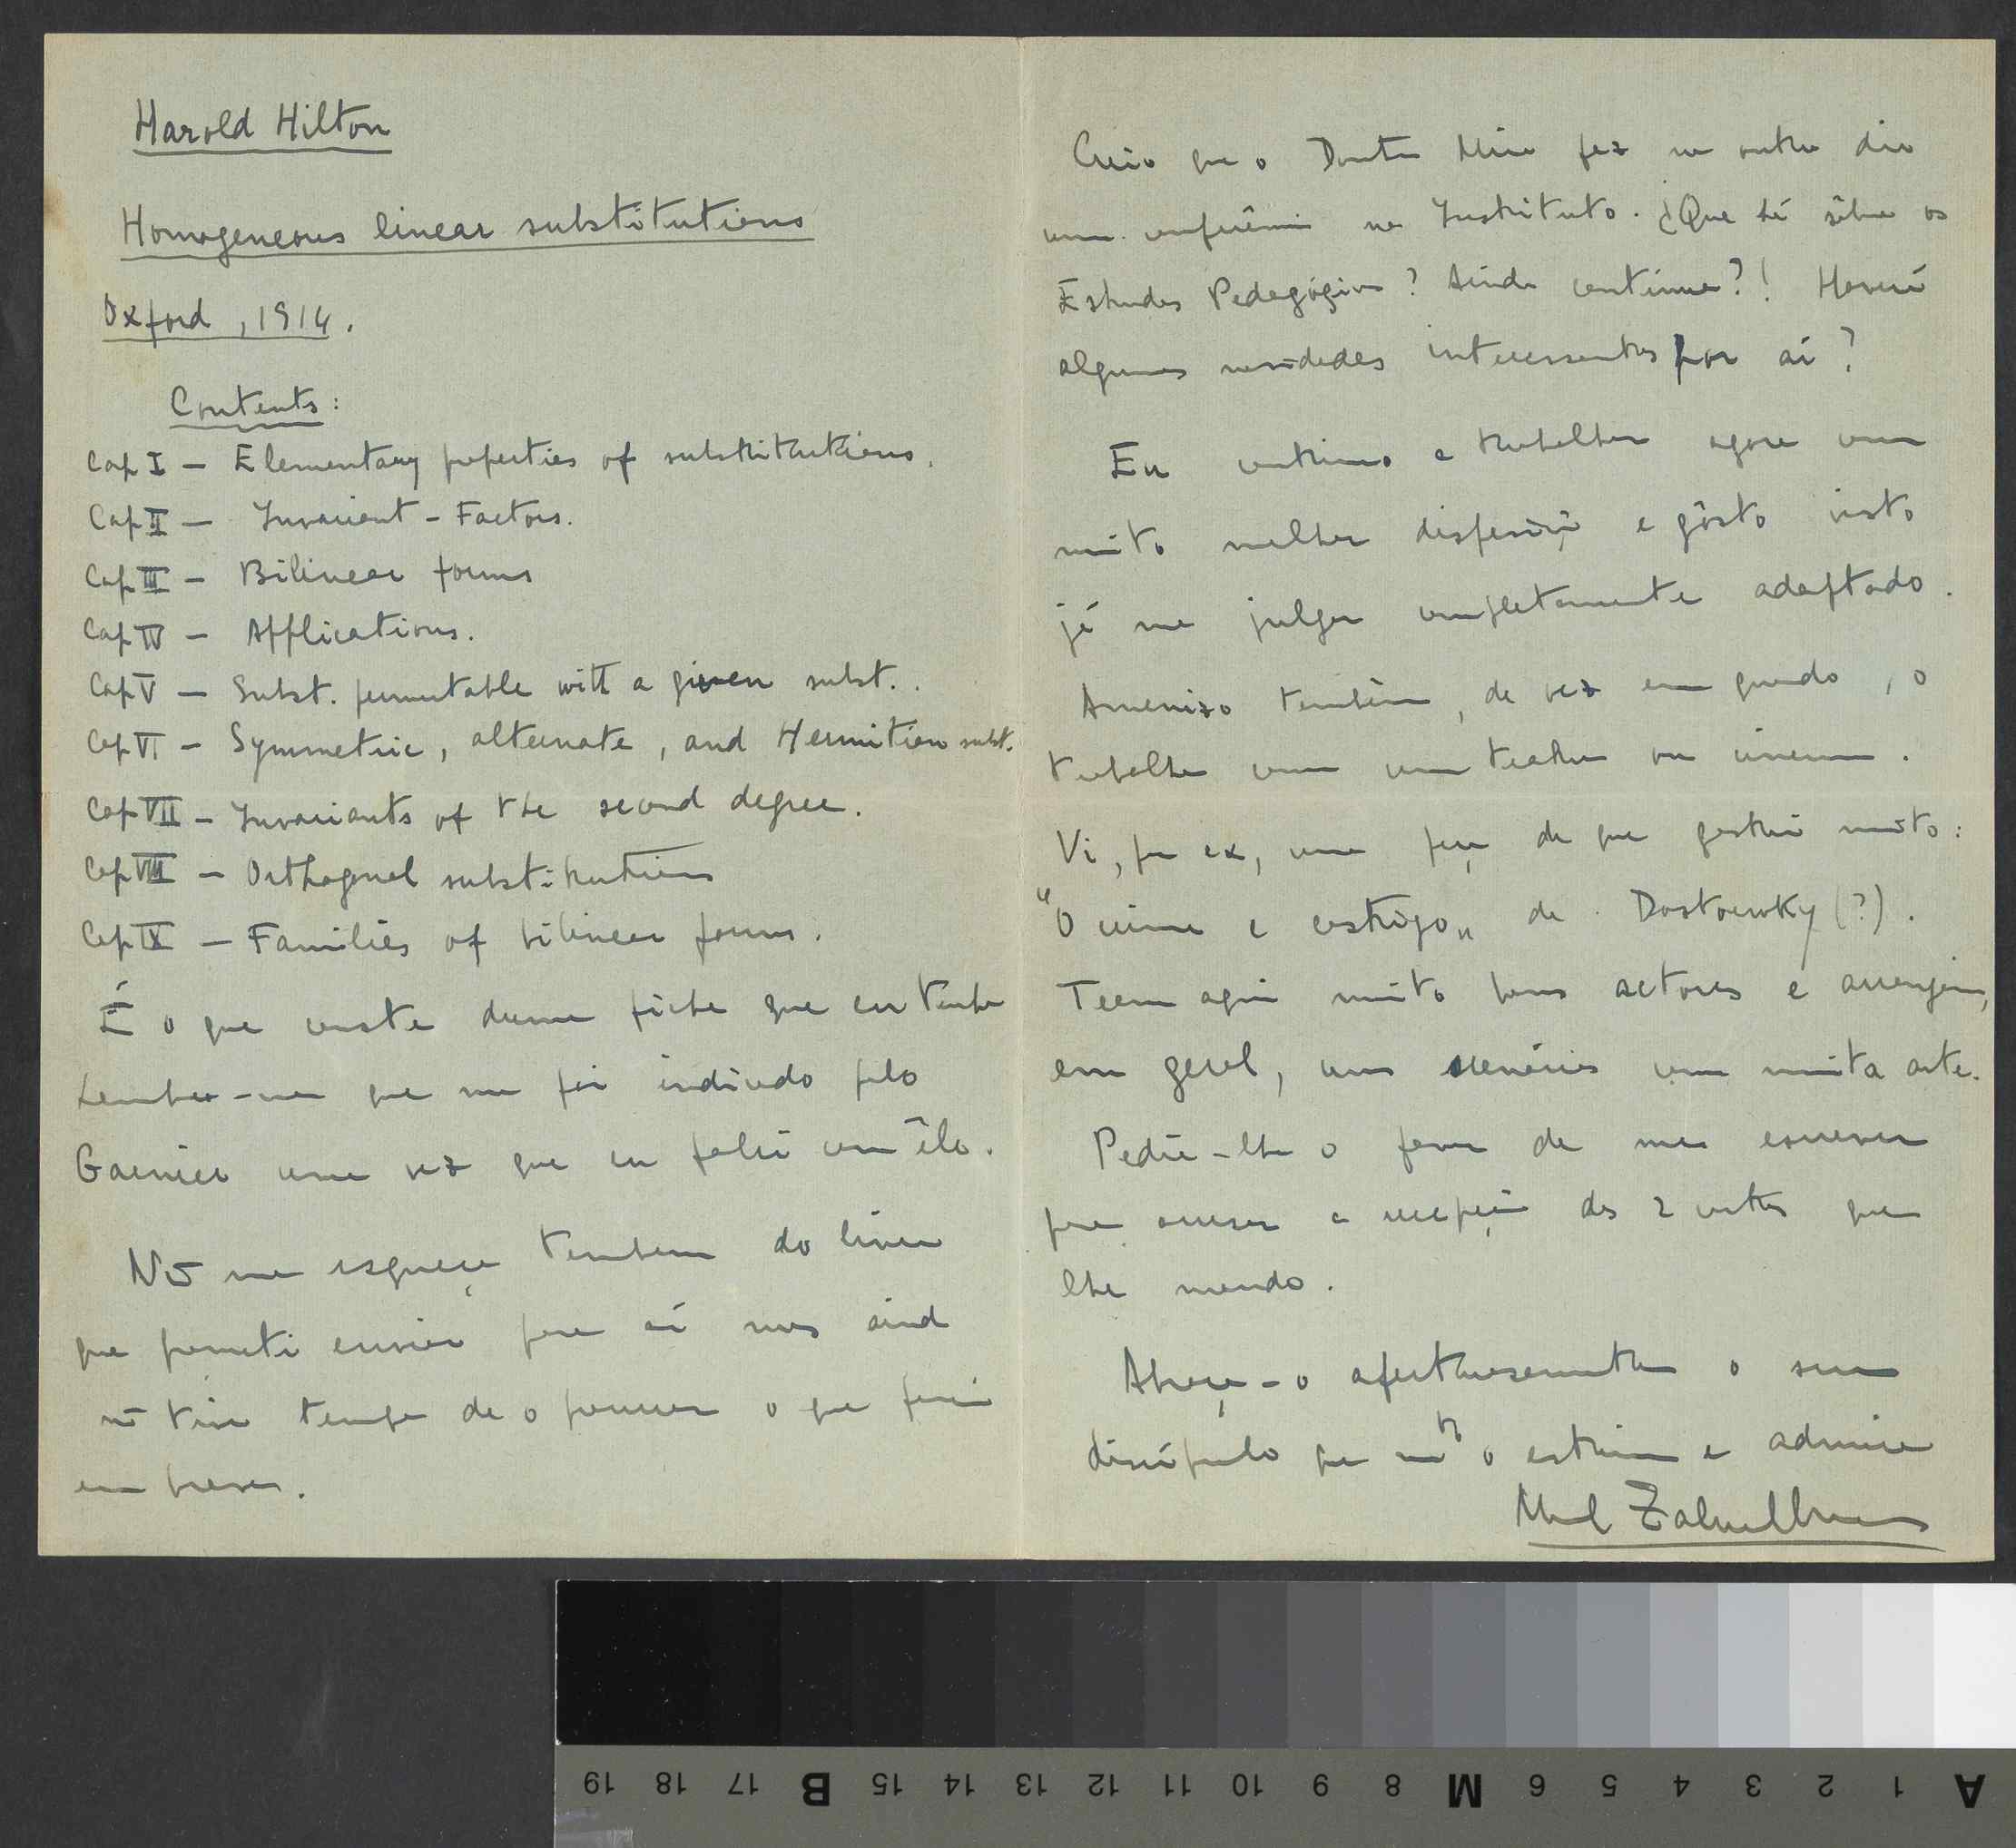 Harold Hilton
Homogeneous linear substitutions
Oxford, 1914.
Contents:
Cap I — Elementary properties of substitutions.
Cap II — Invariant-Factors.
Cap III — Bilinear forms
Cap IV — Applications.
Cap V — Subst. permutable with a given subst..
Cap VI — Symmetric, alternate, and Hermitian subst.
Cap VII — Invariants of the second degree.
Cap VIII — Orthogonal substitutions
Cap IX — Families of bilinear forms.
É o que consta duma ficha que eu tenho
Lembro-me que me foi indicado pelo
Garnier uma vez que eu falei com êle.
Nõ me esqueço tambem do livro
que prometi enviar para aí mas aind
nõ tive tempo de o procurar o que farei
em breve.
Creio que o Doutor Mira fez no outro dia
uma conferência no Instituto. ¿Que há sôbre os
Estudos Pedagógicos? Ainda continua?! Haverá
algumas novidades interessantes por aí?
Eu continuo a trabalhar agora com
muito melhor disposição e gôsto visto
já me julgar completamente adaptado.
Amenizo também, de vez em quando, o
trabalho com um teatro ou cinema.
Vi, por ex, uma peça de que gostei muito:
"O crime e castigo" de Dostoewky (?).
Teem aqui muito bons actores e arranjam,
em geral, uns scenários com muita arte.
Pedia-lhe o favor de me escrever
para acusar a recepção das 2 cartas que
lhe mando.
Abraça-o afectuosamente o seu
discípulo que mto o estima e admira
Mel Zaluar Nunes